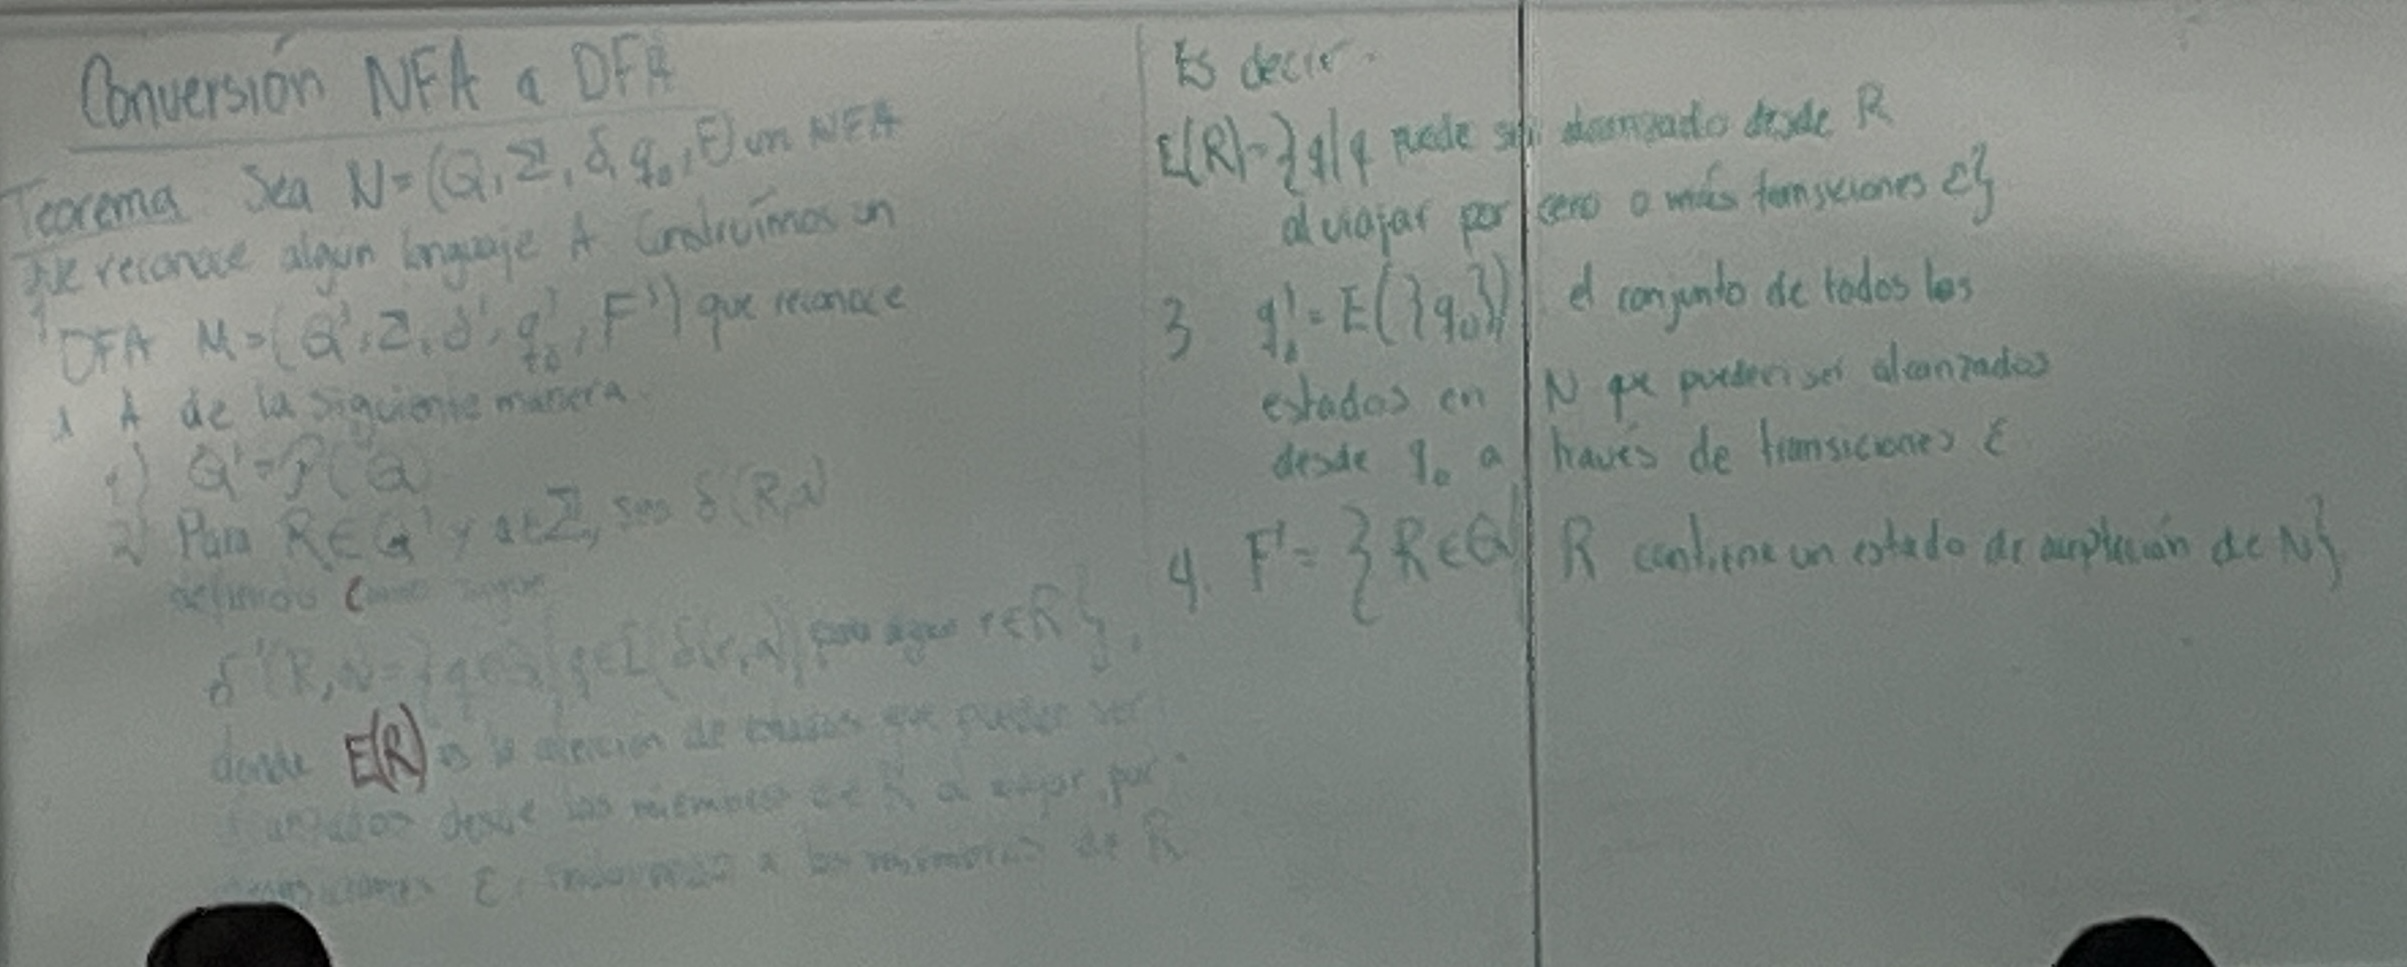 Conversión NFA a DFA
Teorema Sea N=(Q, Σ, δ, q₀, F) un NFA
que reconoce algun lenguaje A. Construímos un
DFA M=(Q', Σ, δ', q₀', F') que reconoce
A de la siguiente manera
1) Q'=P(Q)
2) Para R∈Q' y a∈Σ, sea δ'(R,a)
definido como sigue
δ'(R,a)={q∈Q|q∈E(δ(r,a)) para algun r∈R},
donde E(R) es la colección de estados que pueden ser
alcanzados desde los miembros de R al viajar por
transiciones ε, incluyendo a los miembros de R
Es decir.
E(R)={q|q puede ser alcanzado desde R
al viajar por cero o más transiciones ε}
3 q₀'=E({q₀}) el conjunto de todos los
estados en N que pueden ser alcanzados
desde q₀ a través de transiciones ε
4. F'={R∈Q'| R contiene un estado de aceptación de N}